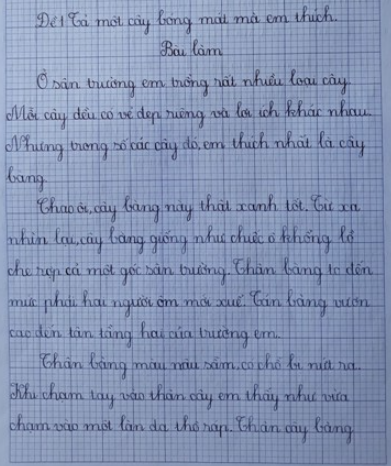 Đề 1 Tả một cây bóng mát mà em thích.
Bài làm
Ở sân trường em trồng rất nhiều loại cây.
Mỗi cây đều có vẻ đẹp riêng và lợi ích khác nhau.
Nhưng trong số các cây đó, em thích nhất là cây
bàng.
Chao ôi, cây bàng này thật xanh tốt. Từ xa
nhìn lại, cây bàng giống như chiếc ô khổng lồ
che rợp cả một góc sân trường. Thân bàng to đến
mức phải hai người ôm mới xuể. Tán bàng vươn
cao đến tận tầng hai của trường em.
Thân bàng màu nâu sẫm, có chỗ bị nứt ra.
Khi chạm tay vào thân cây em thấy như vừa
chạm vào một làn da thô ráp. Thân cây bàng